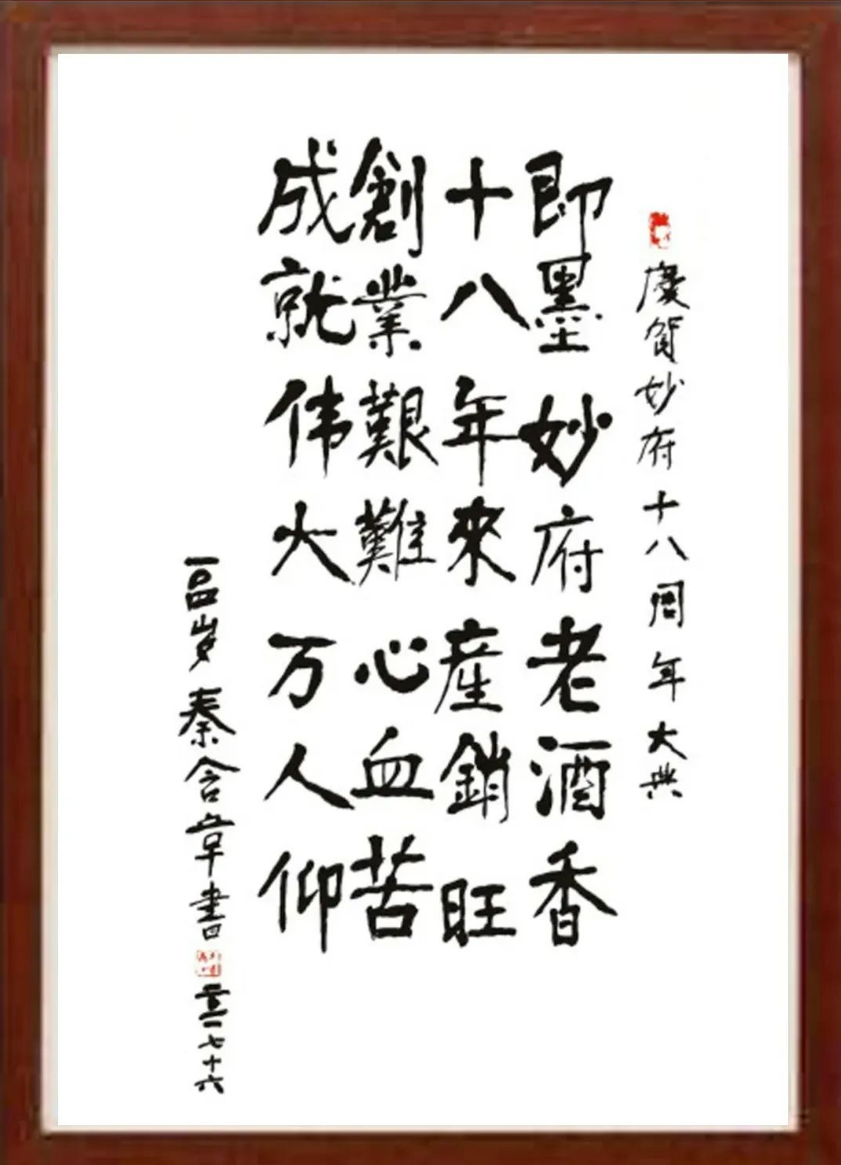 慶賀妙府十八周年大典
即墨妙府老酒香
十八年來産銷旺
創業艱難心血苦
成就伟大万人仰
一〇四岁秦含章書
二〇一一七十六